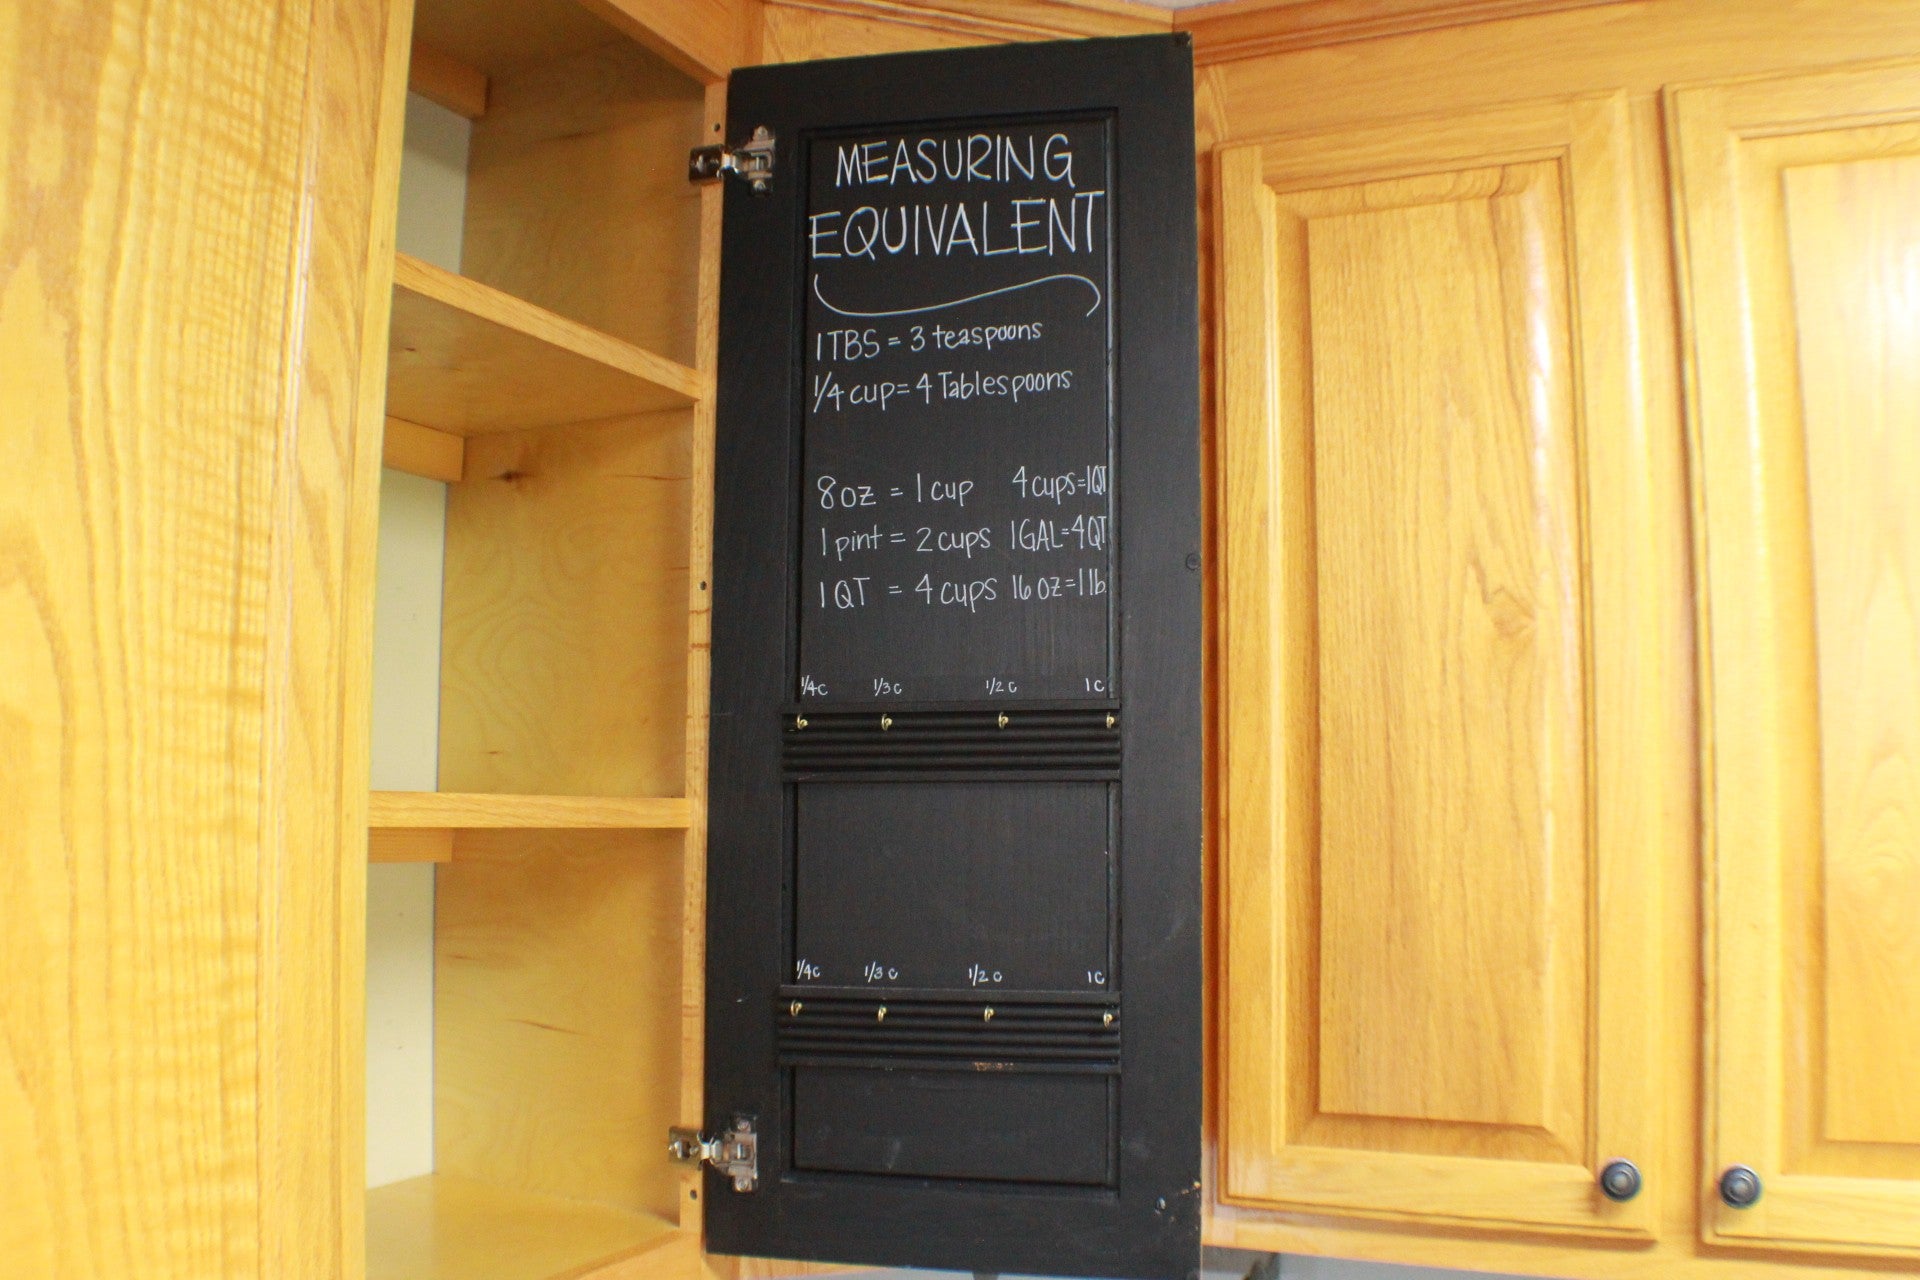 MEASURING
EQUIVALENT
1 TBS = 3 teaspoons
1/4 cup = 4 Tablespoons
8 oz = 1 cup 4 cups = 1QT
1 pint = 2 cups 1GAL = 4QT
1 QT = 4 cups 16 oz = 1 lb
1/4 c 1/3 c 1/2 c 1 c
1/4 c 1/3 c 1/2 c 1 c